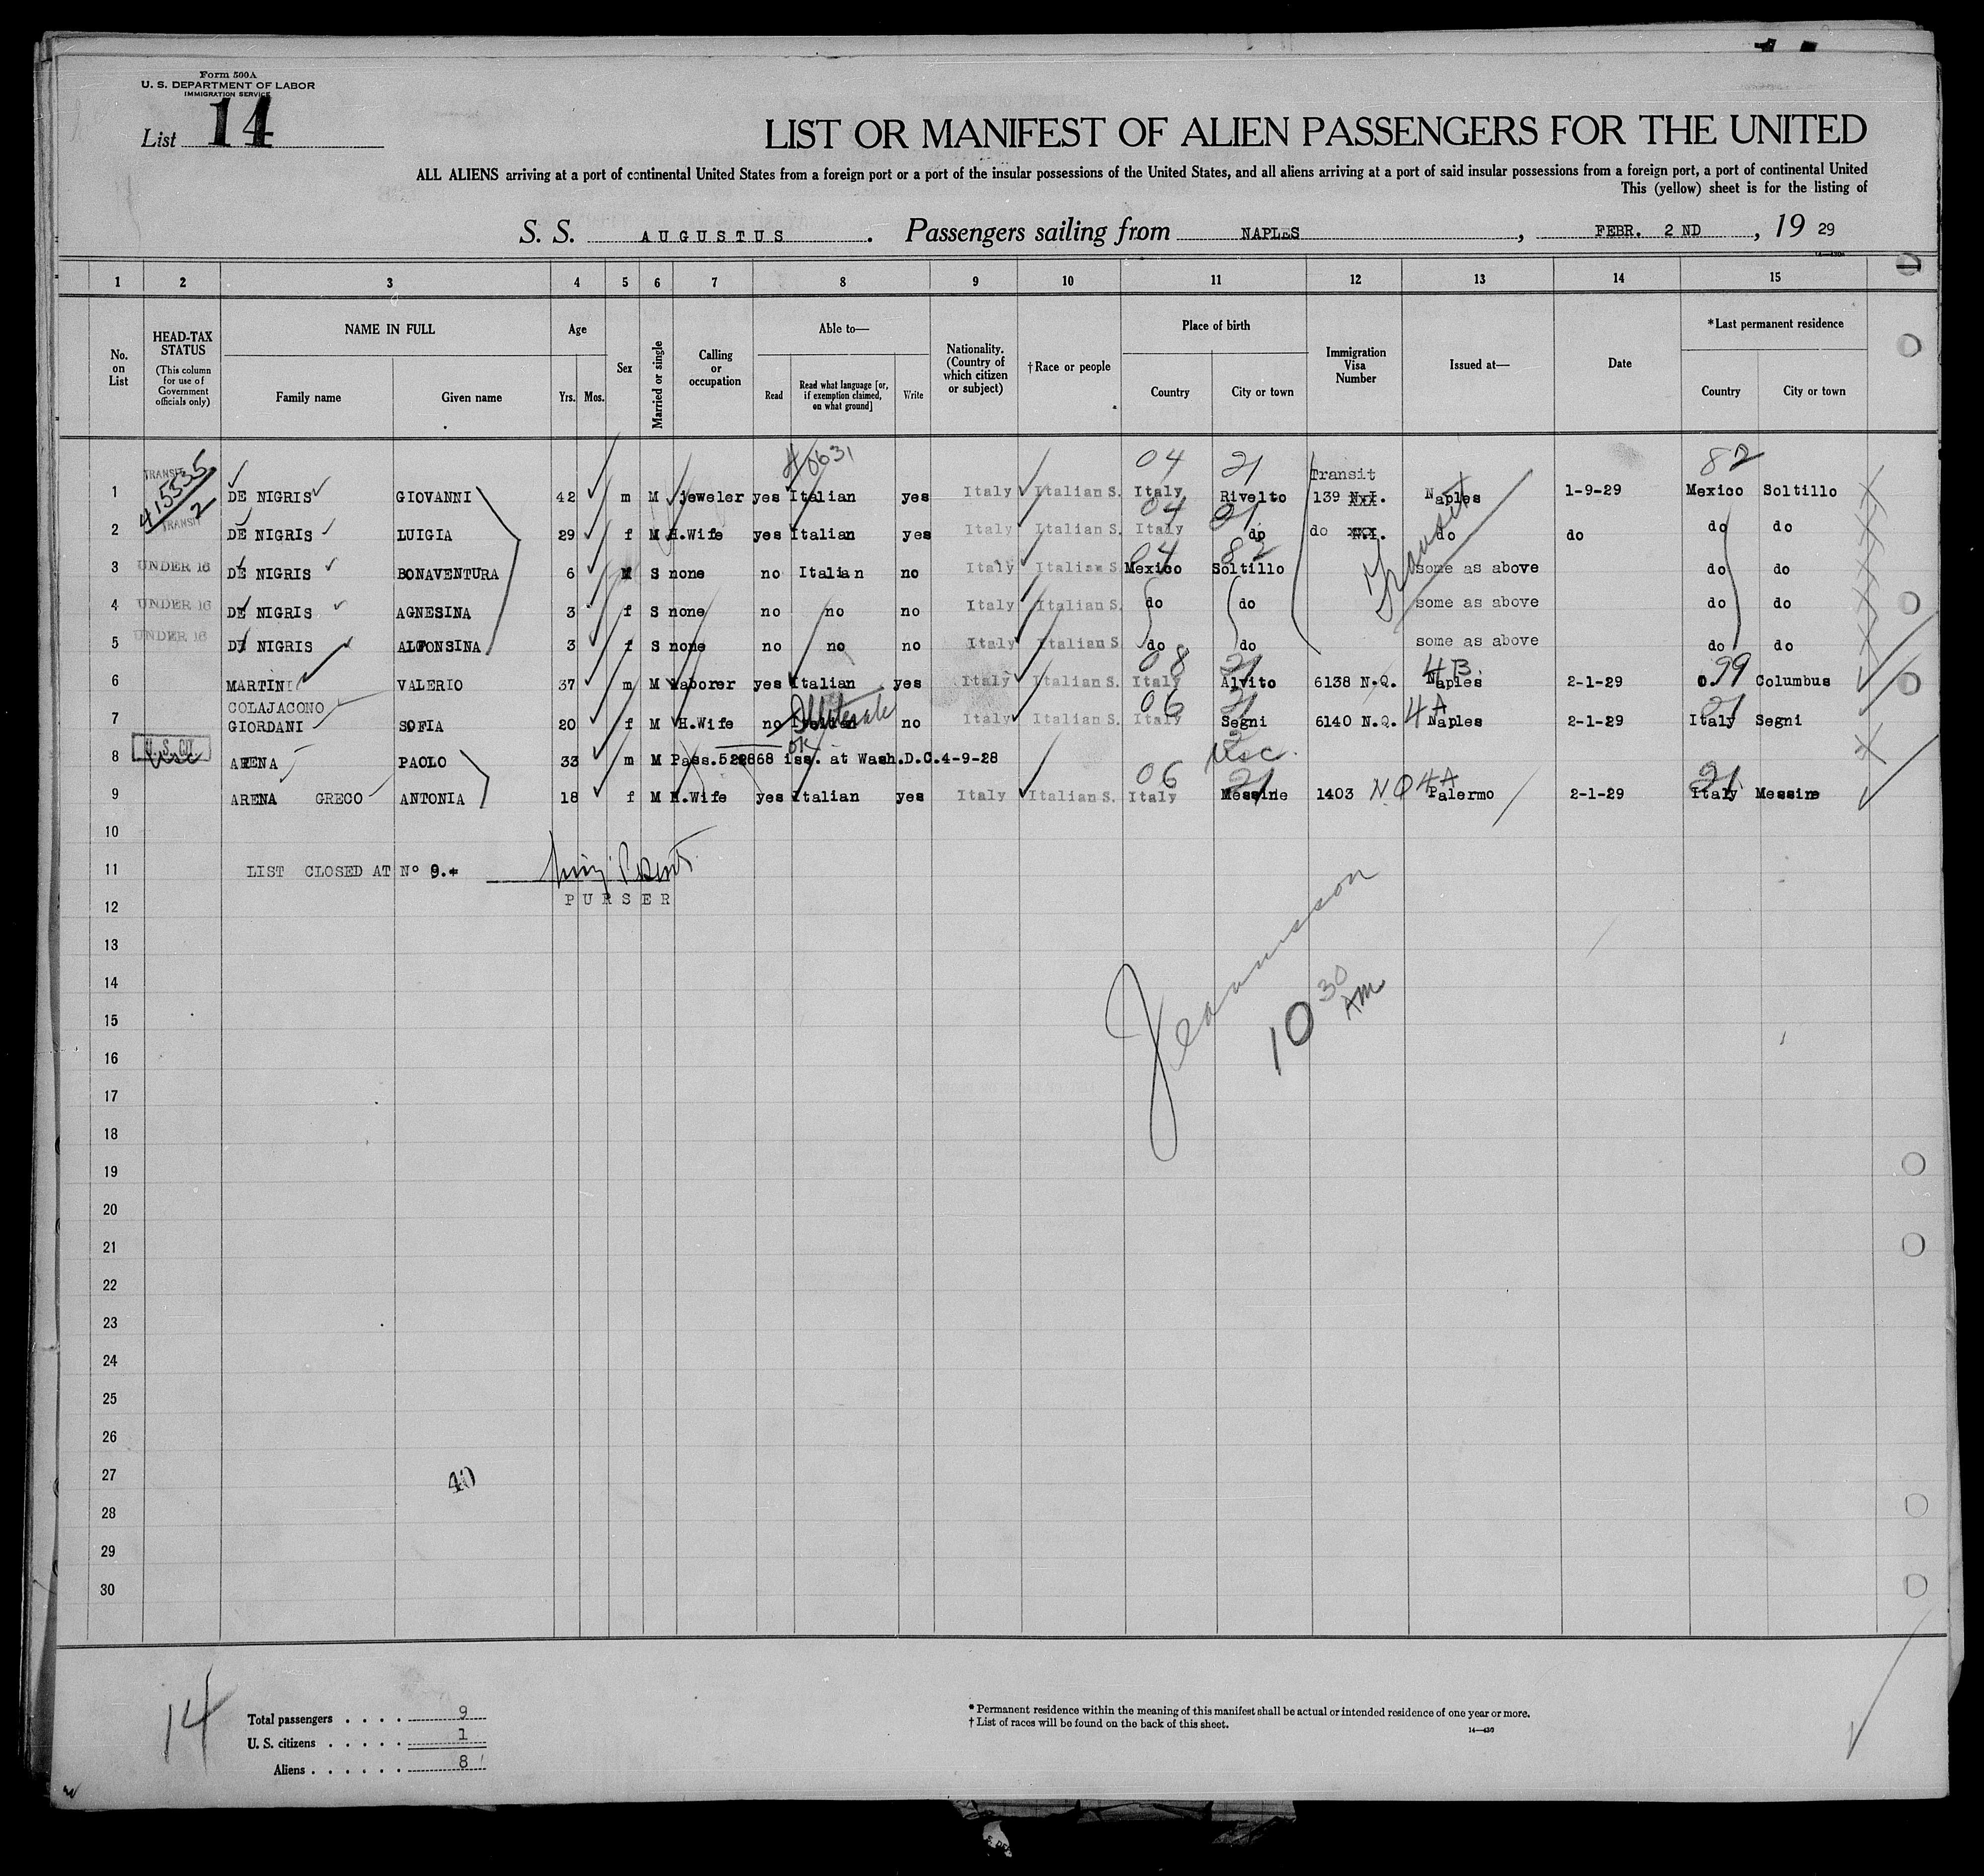 Form 500A
U. S. DEPARTMENT OF LABOR
IMMIGRATION SERVICE
List 14
LIST OR MANIFEST OF ALIEN PASSENGERS FOR THE UNITED
ALL ALIENS arriving at a port of continental United States from a foreign port or a port of the insular possessions of the United States, and all aliens arriving at a port of said insular possessions from a foreign port, a port of continental United
This (yellow) sheet is for the listing of
S. S. AUGUSTUS. Passengers sailing from NAPLES, FEBR. 2 ND, 19 29
1 2 3 4 5 6 7 8 9 10 11 12 13 14 15
No. on List
HEAD-TAX STATUS
(This column for use of Government officials only)
NAME IN FULL
Family name Given name
Age
Yrs. Mos.
Sex
Married or single
Calling or occupation
Able to—
Read
Read what language [or, if exemption claimed, on what ground]
Write
Nationality. (Country of which citizen or subject)
†Race or people
Place of birth
Country City or town
Immigration Visa Number
Issued at—
Date
*Last permanent residence
Country City or town
40631 04 21 Transit 82
TRANSIT
415535
2
1 DE NIGRIS GIOVANNI 42 m M jeweler yes Italian yes Italy Italian S. Italy Rivelto 139 N.I. Naples 1-9-29 Mexico Soltillo
04 21
TRANSIT
2 DE NIGRIS LUIGIA 29 f M H.Wife yes Italian yes Italy Italian S. Italy do do N.I. do do do do
Transit
04 82
3 UNDER 16 DE NIGRIS BONAVENTURA 6 M S none no Italian no Italy Italian S. Mexico Soltillo some as above do do
4 UNDER 16 DE NIGRIS AGNESINA 3 f S none no no no Italy Italian S. do do some as above do do
5 UNDER 16 DE NIGRIS ALFONSINA 3 f S none no no no Italy Italian S. do do some as above do do
08 21 4B. 99
6 MARTINI VALERIO 37 m M Laborer yes Italian yes Italy Italian S. Italy Alvito 6138 N.Q. Naples 2-1-29 Columbus
COLAJACONO
06 21 4A 21
7 GIORDANI SOFIA 20 f M H.Wife no Italian no Italy Italian S. Italy Segni 6140 N.Q. Naples 2-1-29 Italy Segni
OK
U. S. CIT.
usc
8 ARENA PAOLO 33 m M Pass.522868 iss. at Wash.D.C.4-9-28 Usc.
06 21 NQ 4A 21
9 ARENA GRECO ANTONIA 18 f M H.Wife yes Italian yes Italy Italian S. Italy Messine 1403 Palermo 2-1-29 Italy Messine
10
11 LIST CLOSED AT N° 9.-
PURSER
12
13
14
15
10 30 AM
16
17
18
19
20
21
22
23
24
25
26
27
40
28
29
30
14
Total passengers . . . . 9
U. S. citizens . . . . . 1
Aliens . . . . . . 8
* Permanent residence within the meaning of this manifest shall be actual or intended residence of one year or more.
† List of races will be found on the back of this sheet.
14—430